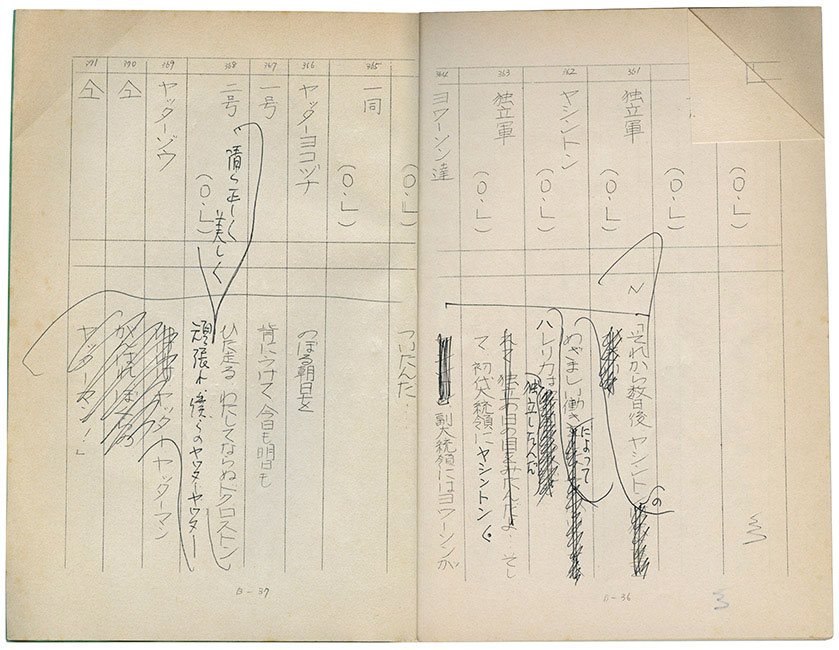 (O.L)
(O.L)
361 独立軍 (O.L) N 「それから数日後 ヤシント の
362 ヤシントン (O.L) めざましい働き によって
ハレリカは 独立したんだ
363 独立軍 (O.L) れて 独立の日の目をみたんだよ. そし
て、初代大統領にヤシントン。
364 ヨワーソン達 副大統領にはヨワーソンが
B-36
(O.L) ついたんだ.
365 一同 (O.L)
366 ヤッターヨコヅナ のぼる朝日を
367 一号 背にうけて 今日も明日も
368 二号 (O.L) ひた走る わたしてならぬドクロストン
清く正しく
美しく
頑張れ、僕らのヤッターヤッター
369 ヤッターゾウ ヤッターマン
370 仝 がんばれ ぼくらの
371 仝 ヤッターマン!」
B-37